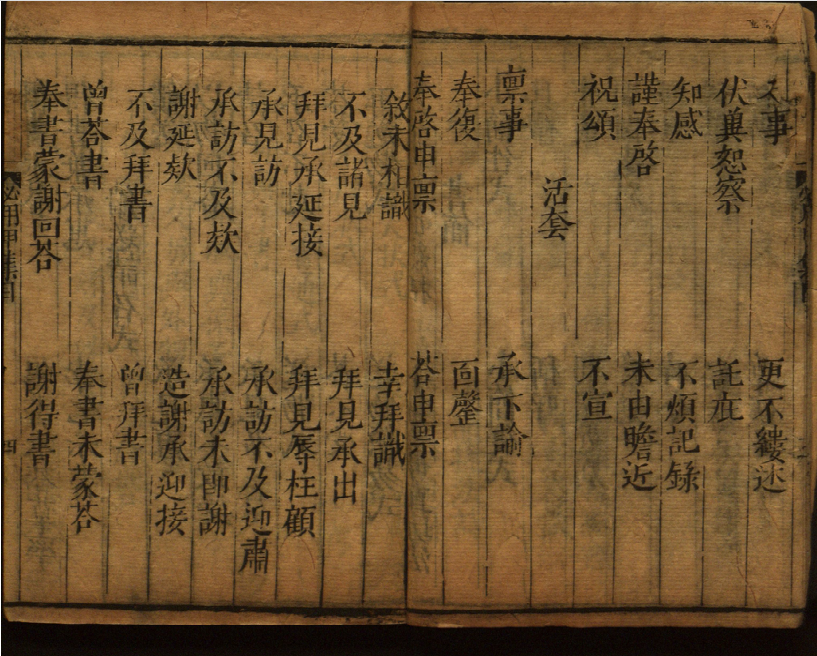 入事 更不縷述
伏兾恕察 託庇
知感 不煩記錄
謹奉啓 未由瞻近
祝頌 不宣
活套
稟事 承下諭
奉復 靣罄
奉啓申稟 荅申稟
敘未相識 幸拜識
不及諸見 拜見承出
拜見承延接 拜見辱枉顧
承見訪 承訪不及迎肅
承訪不及欵 承訪未即謝
謝延欵 造謝承迎接
不及拜書 曾拜書
曾荅書 奉書未蒙荅
奉書蒙謝回荅 謝得書
四